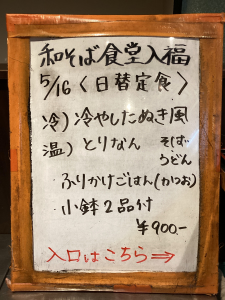 和そば食堂入福
5/16〈日替定食〉
冷)冷やしたぬき風
温)とりなん そば
うどん
・ふりかけごはん(かつお)
・小鉢2品付
¥900.-
入口はこちら→